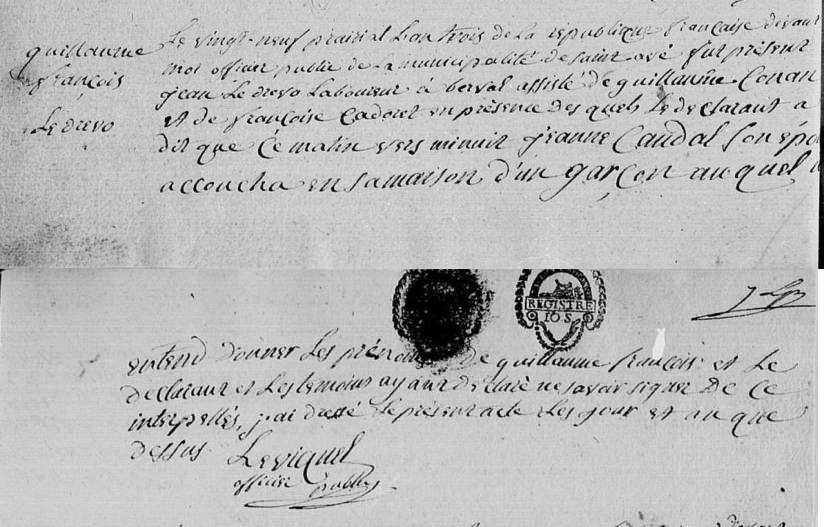 guillaume
françois
Le drevo
Le vingt-neuf prairial L'an trois de La republique française devant
moi officier public de La municipalité de saint avé fut présent
jean Le drevo Laboureur à berval assisté de guillaume Conan
et de françoise Cadoret en présence des quels Le declarant a
dit que Ce matin vers minuit jeanne Caudal son épou
accoucha en sa maison d'un garçon au quel il
REGISTRE
10 S.
entend donner Les prénoms de guillaume françois et Le
declarant et Les temoins ayant declaré ne savoir signer De Ce
interpellés, j'ai dressé Le présent acte Les jour et an que
dessus
officier public